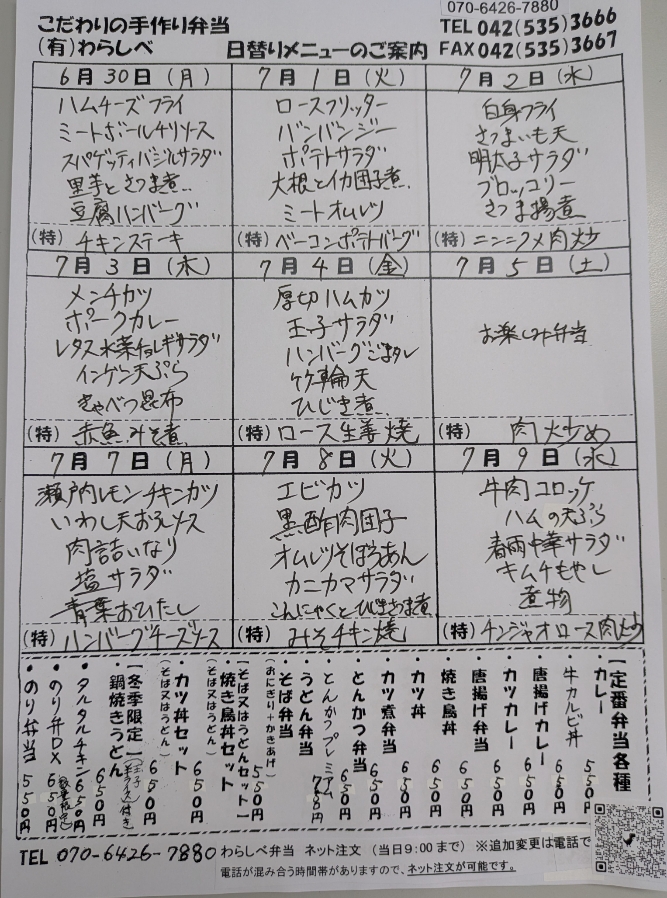 070-6426-7880
こだわりの手作り弁当
(有)わらしべ
日替りメニューのご案内
TEL 042(535)3666
FAX 042(535)3667
6月30日(月)
ハムチーズフライ
ミートボールチリソース
スパゲッティバジルサラダ
里芋とさつま煮
豆腐ハンバーグ
(特) チキンステーキ
7月1日(火)
ロースフリッター
バンバンジー
ポテトサラダ
大根とイカ団子煮
ミートオムレツ
(特) ベーコンポテトバーグ
7月2日(水)
白身フライ
さつまいも天
明太子サラダ
ブロッコリー
さつま揚煮
(特) ニンニクメ肉炒
7月3日(木)
メンチカツ
ポークカレー
レタス水菜チョレギサラダ
インゲン天ぷら
きゃべつ昆布
(特) 赤魚みそ煮
7月4日(金)
厚切ハムカツ
玉子サラダ
ハンバーグごまタレ
竹輪天
ひじき煮
(特) ロース生姜焼
7月5日(土)
お楽しみ弁当
(特) 肉炒め
7月7日(月)
瀬戸内レモンチキンカツ
いわし天おろしソース
肉詰いなり
塩サラダ
青菜おひたし
(特) ハンバーグチーズソース
7月8日(火)
エビカツ
黒酢肉団子
オムレツそぼろあん
カニカマサラダ
こんにゃくとひじきさつま煮
(特) みそチキン焼
7月9日(水)
牛肉コロッケ
ハムの天ぷら
春雨中華サラダ
キムチもやし
煮物
(特) チンジャオロース肉炒
【定番弁当各種】
・カレー 550円
・牛カルビ丼 650円
・唐揚げカレー 650円
・カツカレー 650円
・唐揚げ弁当 650円
・焼き鳥丼 650円
・カツ丼 650円
・カツ煮弁当 650円
・とんかつ弁当 650円
・とんかつプレミアム
・うどん弁当
・そば弁当 550円
(おにぎり+かきあげ)
【そば又はうどんセット】
・焼き鳥丼セット 650円
(そば又はうどん)
・カツ丼セット 650円
(そば又はうどん)
【冬季限定】
・鍋焼きうどん 650円
・タルタルチキン 650円
・のり弁DX 650円
・のり弁当 550円
TEL 070-6426-7880 わらしべ弁当 ネット注文 (当日9:00まで) ※追加変更は電話で
電話が混み合う時間帯がありますので、ネット注文が可能です。